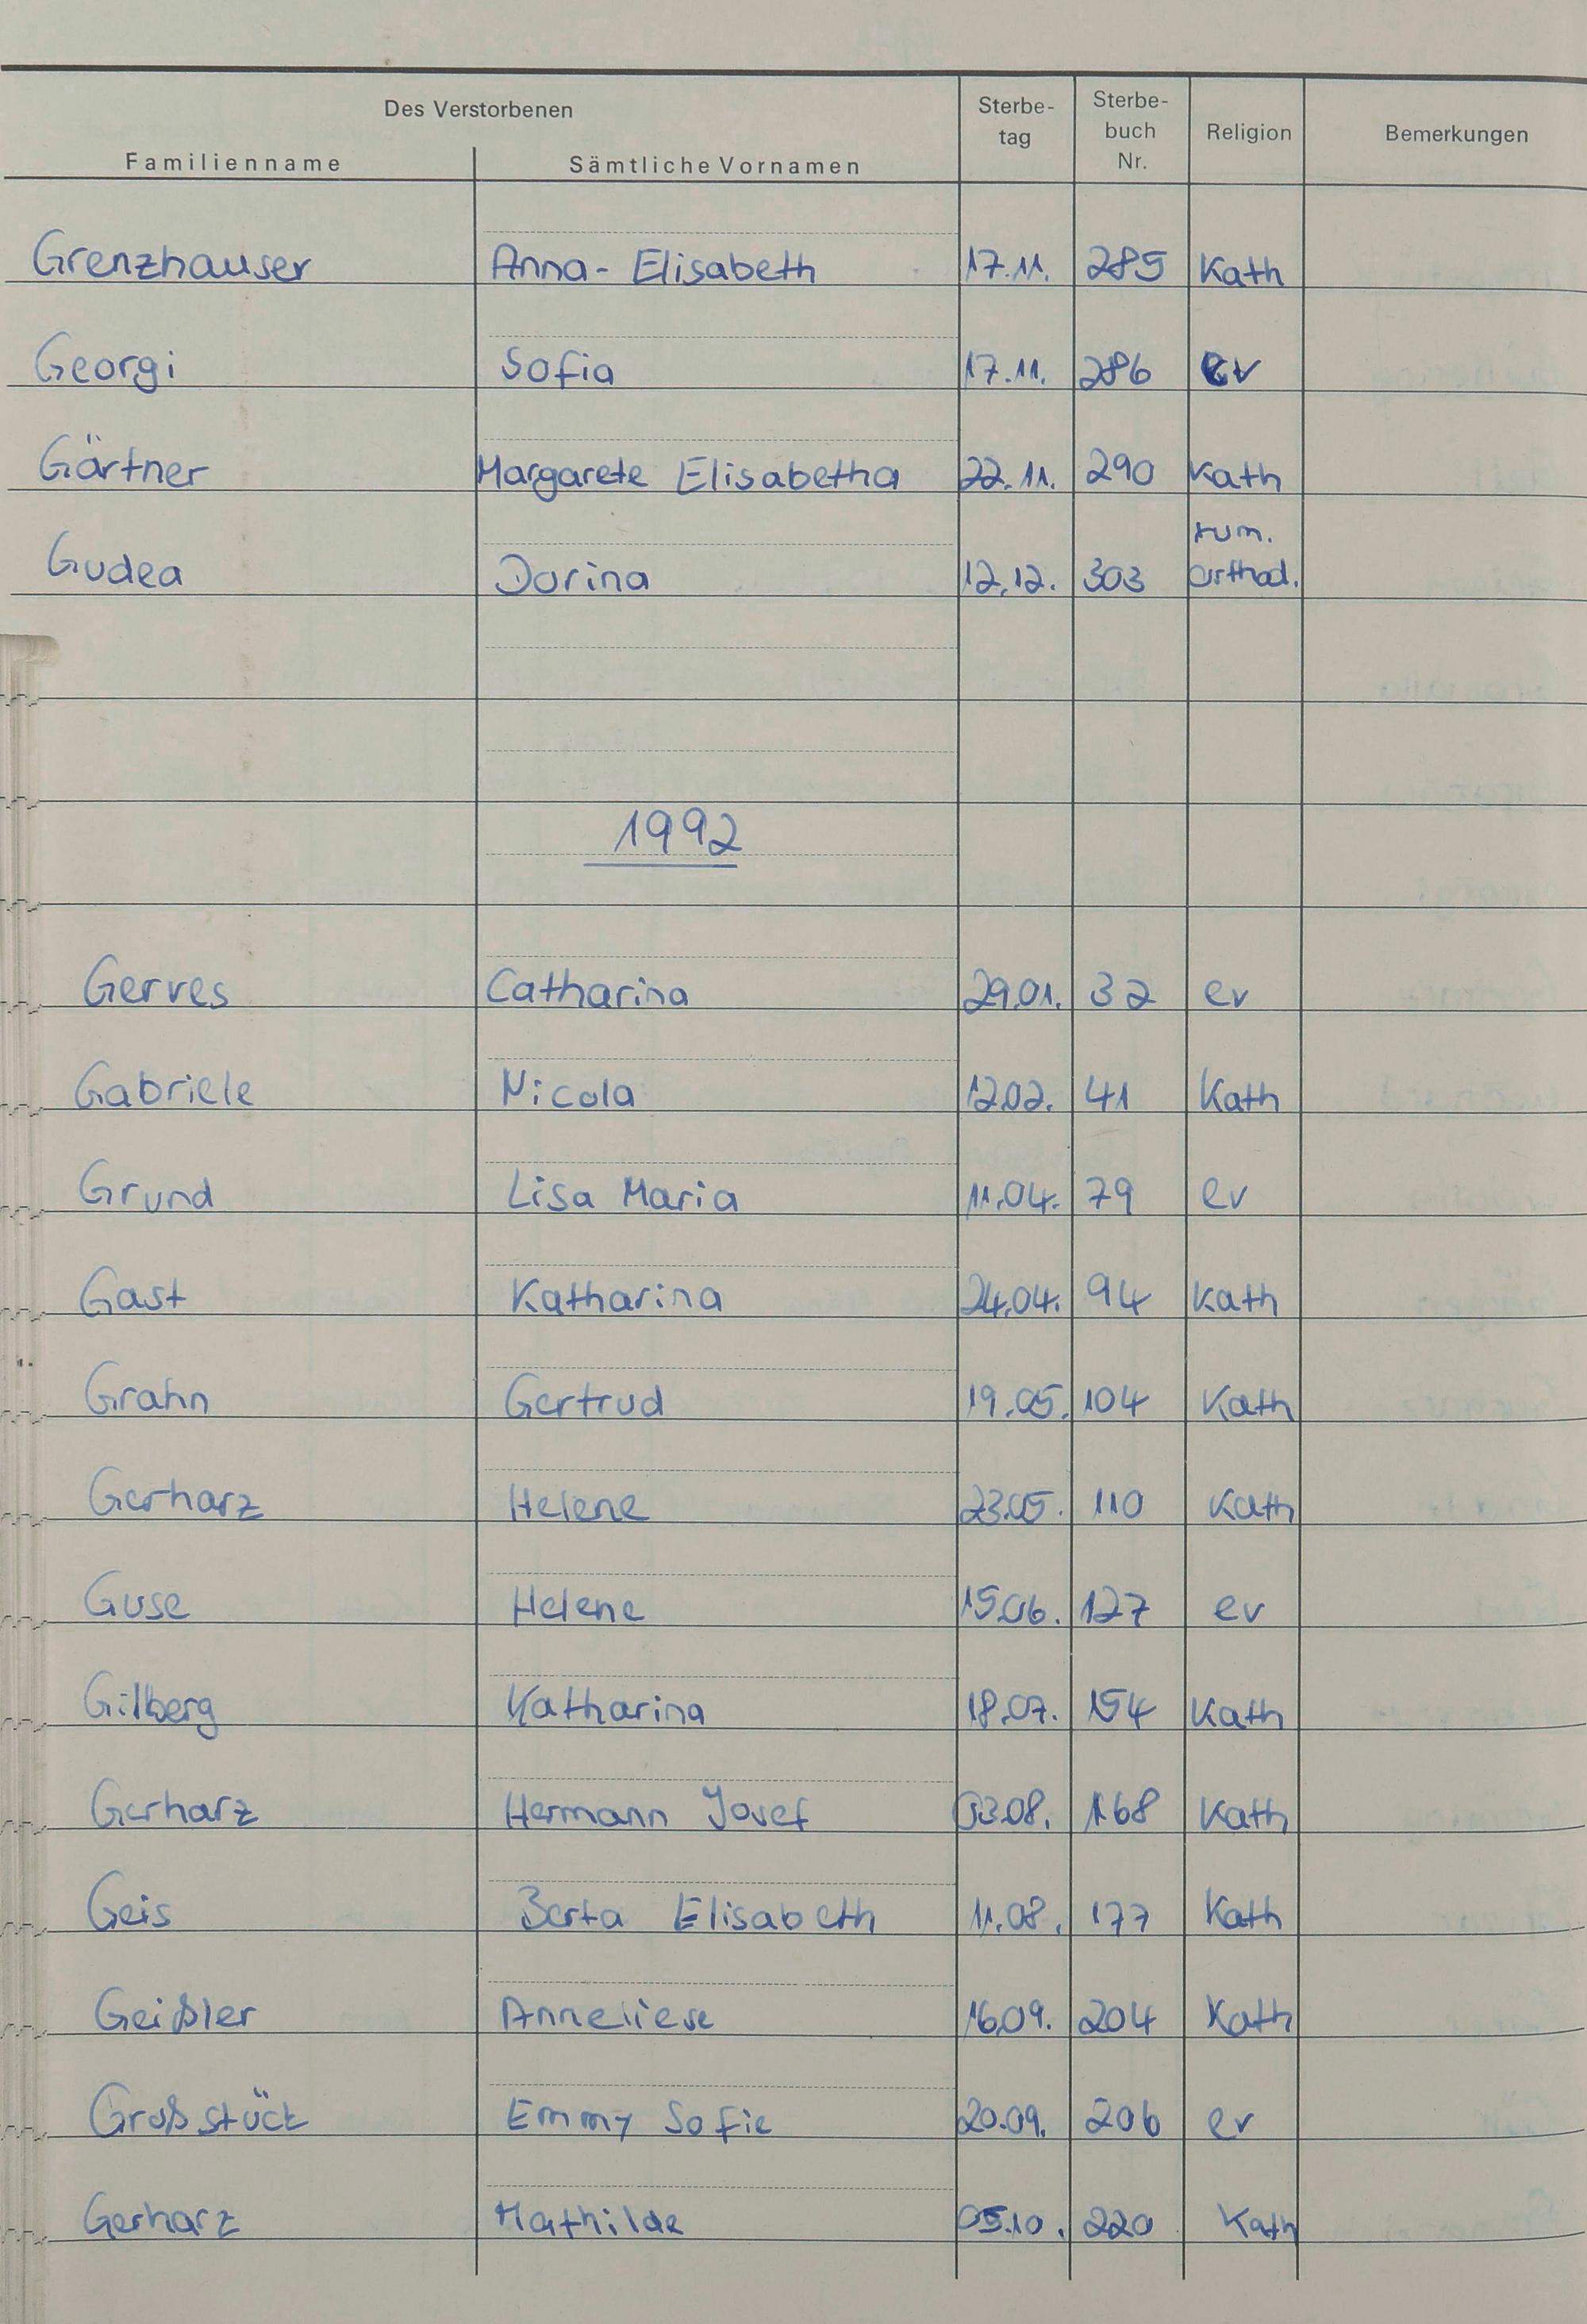 Des Verstorbenen
Familienname Sämtliche Vornamen Sterbe-tag Sterbe-buch Nr. Religion Bemerkungen
Grenzhauser Anna-Elisabeth 17.11. 285 Kath
Georgi Sofia 17.11. 286 ev
Gärtner Margarete Elisabetha 22.11. 290 Kath
Gudea Dorina 12.12. 303 rum. orthod.
1992
Gerves Catharina 29.01. 32 ev
Gabriele Nicola 12.02. 41 Kath
Grund Lisa Maria 11.04. 79 ev
Gast Katharina 24.04. 94 Kath
Grahn Gertrud 19.05. 104 Kath
Gerharz Helene 23.05. 110 Kath
Guse Helene 15.06. 127 ev
Gilberg Katharina 18.07. 154 Kath
Gerharz Hermann Josef 03.08. 168 Kath
Geis Berta Elisabeth 11.08. 177 Kath
Geißler Anneliese 16.09. 204 Kath
Großstück Emmy Sofie 20.09. 206 ev
Gerharz Mathilde 05.10. 220 Kath